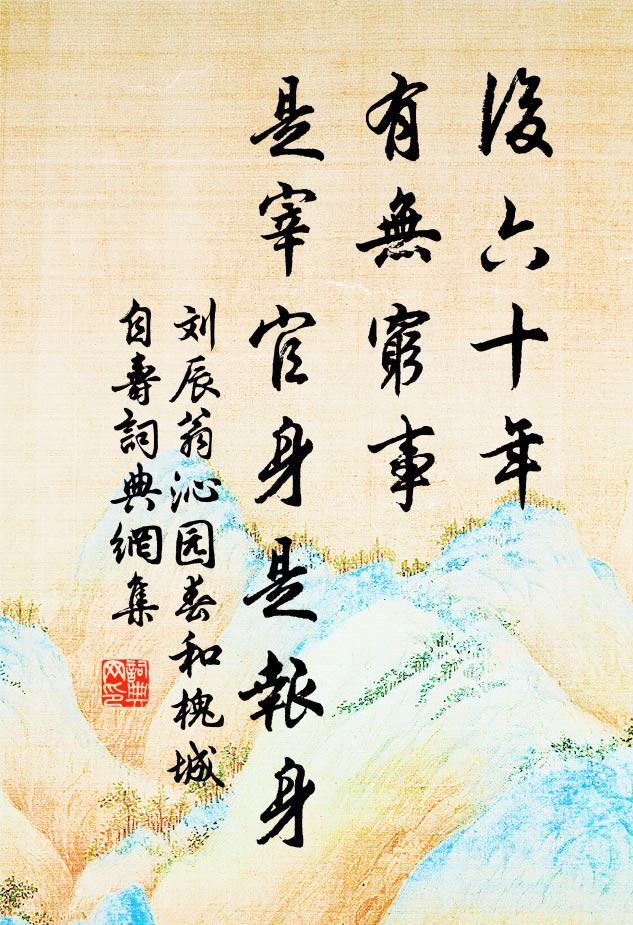 後六十年
有無窮事
是宰官身是報身
刘辰翁沁园春和槐城
自壽詞典網集
詞典
网印